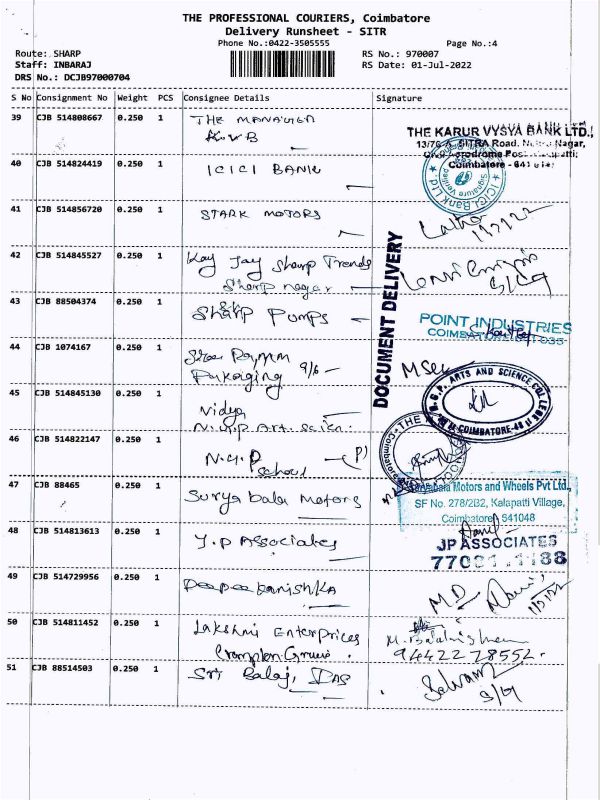 THE PROFESSIONAL COURIERS, Coimbatore
Delivery Runsheet - SITR
Phone No.:0422-3505555 Page No.:4
Route: SHARP RS No.: 970007
Staff: INBARAJ RS Date: 01-Jul-2022
DRS No.: DCJB97000704
S No Consignment No Weight PCS Consignee Details Signature
39 CJB 514808667 0.250 1 THE MANAGER
K.V.B
THE KARUR VYSYA BANK LTD.,
SITRA Road,
Coimbatore - 641
40 CJB 514824419 0.250 1 ICICI BANK
ICICI Bank Ltd
Signature Verified
41 CJB 514856720 0.250 1 STARK MOTORS
Latha
1/7/22
DOCUMENT DELIVERY
42 CJB 514845527 0.250 1 Kay Jay Sharp Trends
Sharp nagar
43 CJB 88504374 0.250 1 Sharp Pumps
POINT INDUSTRIES
44 CJB 1074167 0.250 1 Sree
Pakaiging 9/6
45 CJB 514845130 0.250 1 Vidya
N.G.P Art. Scien.
G.P. ARTS AND SCIENCE COLLEGE
COIMBATORE-48
46 CJB 514822147 0.250 1 N.G.P
School
47 CJB 88465 0.250 1 Surya bala Motors
Motors and Wheels Pvt Ltd.,
SF No. 278/2B2, Kalapatti Village,
Coimbatore 641048
48 CJB 514813613 0.250 1 J.P Associates
JP ASSOCIATES
49 CJB 514729956 0.250 1 Deepee kanishka
1/7/22
50 CJB 514811452 0.250 1 Lakshmi Enterprices
Crompton Greves
9442278552
51 CJB 88514503 0.250 1 Sri Balaji DAS